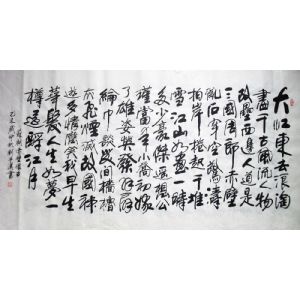 大江東去浪淘
盡千古風流人物
故壘西邊人道是
三國周郎赤壁
亂石穿空驚濤
拍岸捲起千堆
雪江山如畫一時
多少豪傑遙想公
瑾當年小喬初嫁
了雄姿英發羽扇
綸巾談笑間檣櫓
灰飛煙滅故國神
遊多情應笑我早生
華髮人生如夢一
樽還酹江月